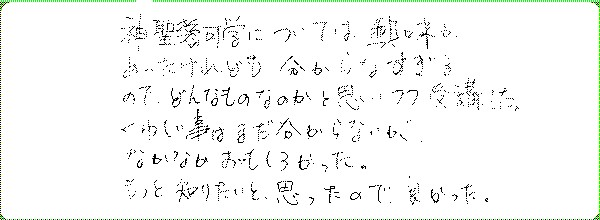 神聖幾何学については興味が
あったけれども 分からなすぎる
ので、どんなものなのかと思いつつ受講した。
くわしい事はまだ分からないが、
なかなかおもしろかった。
もっと知りたいと、思ったので良かった。